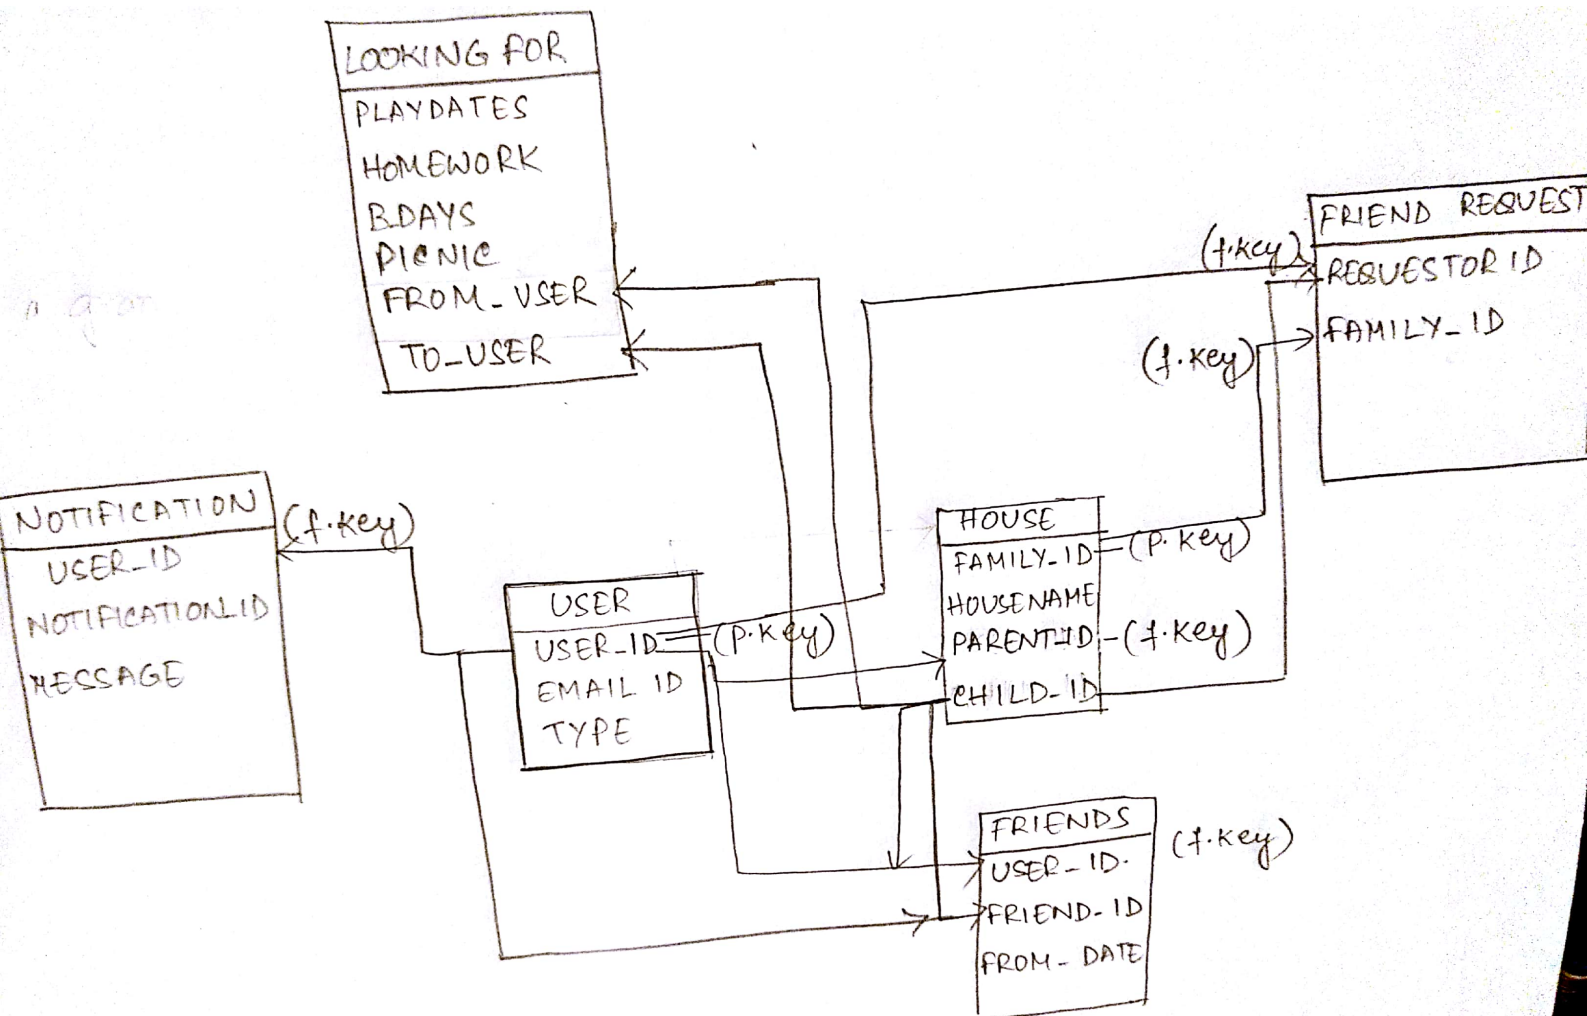 LOOKING FOR
PLAYDATES
HOMEWORK
B.DAYS
PICNIC
FROM_USER
TO_USER
FRIEND REQUEST
(f.key)
REQUESTOR ID
(f.key)
FAMILY_ID
NOTIFICATION
(f.key)
USER_ID
NOTIFICATION_ID
MESSAGE
USER
USER_ID
(p.key)
EMAIL ID
TYPE
HOUSE
FAMILY_ID
(p.key)
HOUSENAME
PARENT_ID
(f.key)
CHILD_ID
FRIENDS
(f.key)
USER_ID.
FRIEND_ID
FROM_DATE